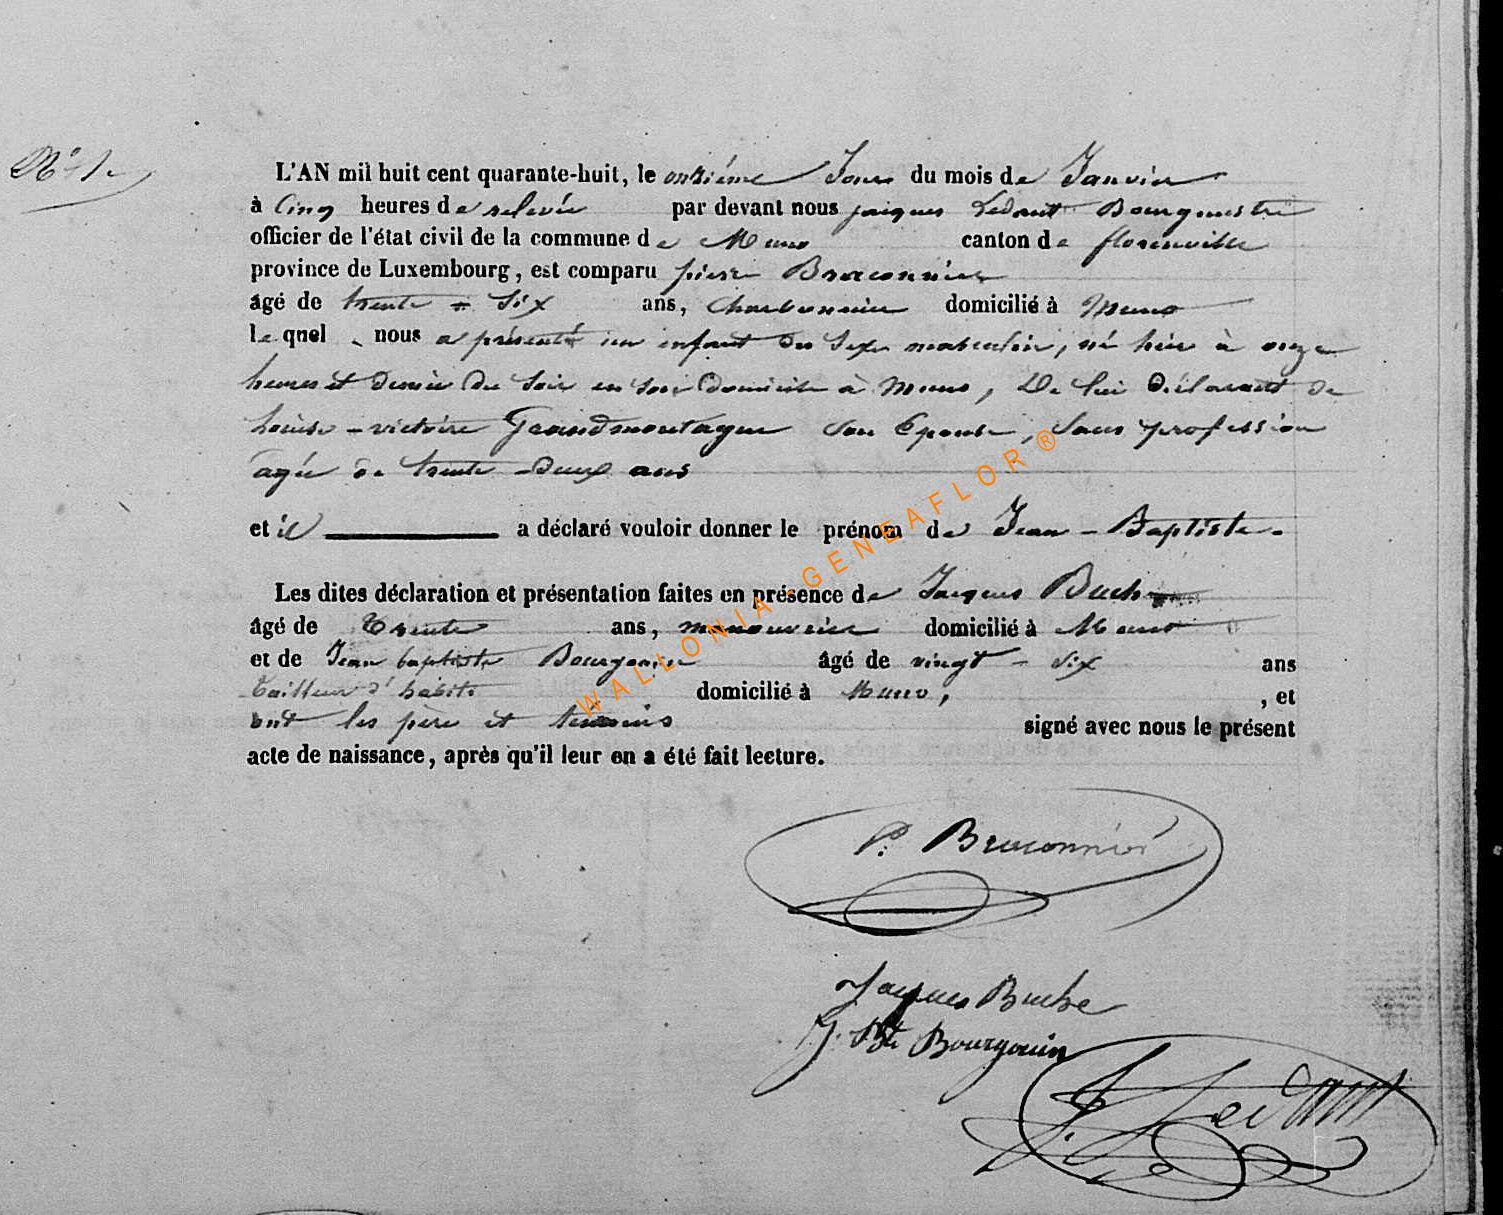 N° 1.
L'AN mil huit cent quarante-huit, le onzième Jour du mois de Janvier
à Cinq heures de relevée par devant nous jacques Ledant Bourgmestre
officier de l'état civil de la commune de Muno canton de florenville
province de Luxembourg, est comparu pierre Braconnier
âgé de trente = Six ans, Charbonnier domicilié à Muno
le quel nous a présenté un enfant du Sexe masculin, né hier à onze
heures et demie du Soir en Son domicile à Muno, De lui Déclarant de
Louise - victoire Grandmontagne Son Epouse, Sans profession
agée de trente - Deux ans
et il a déclaré vouloir donner le prénom de Jean - Baptiste.
Les dites déclaration et présentation faites en présence de Jacques Buche
âgé de Trente ans, manouvrier domicilié à Muno
et de Jean baptiste Bourgouin âgé de vingt - Six ans
tailleur d'habits domicilié à Muno, , et
ont les père et témoins signé avec nous le présent
acte de naissance, après qu'il leur en a été fait lecture.
P. Braconnier
Jacques Buche
J. Bte Bourgouin
J. Ledant
WALLONIA-GENEAFLOR®